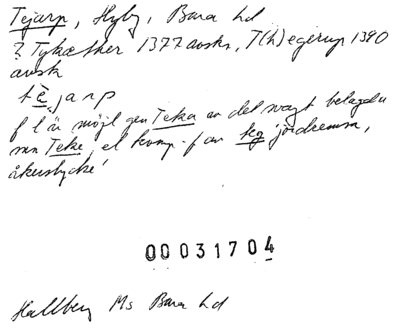 Tejarp, Hyby, Bara hd
? Tykæther 1377 avskr., T(h)egerup 1390
avsk
tèjarp
f l är möjl gen Teka av det svagt belagda
mn Teke, el komp.f av teg 'jordremsa,
åkerstycke'
00031704
Hallberg Ms Bara hd